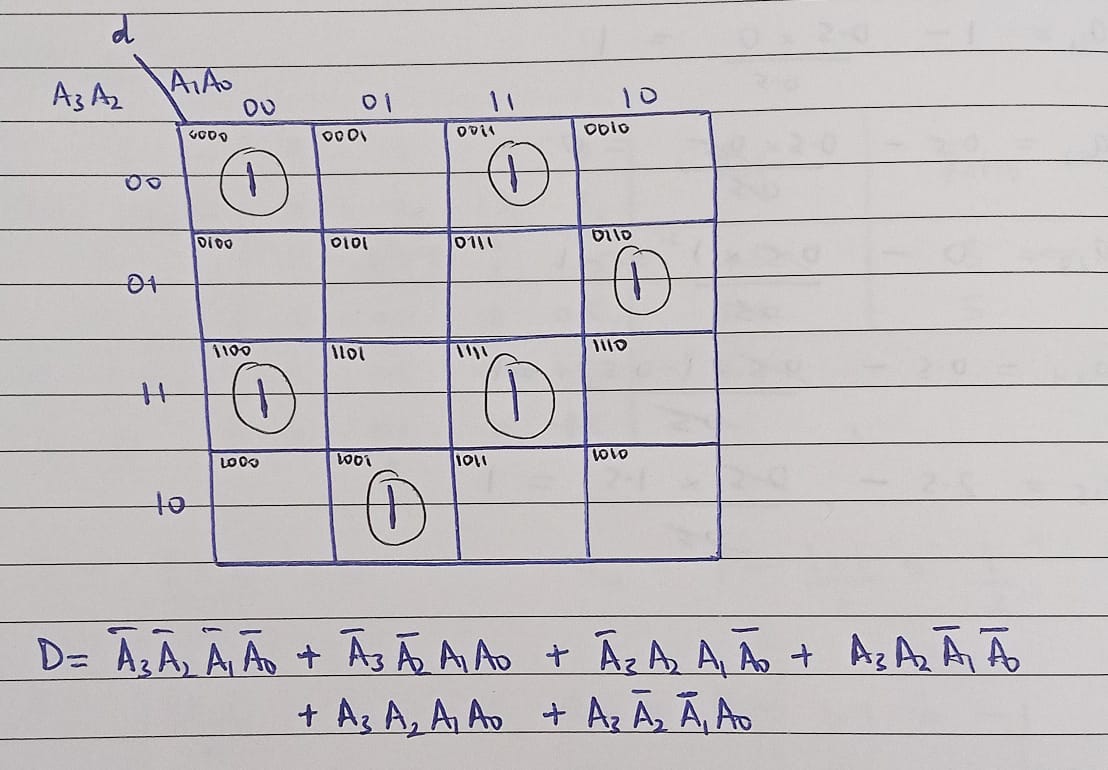 d
A₃A₂ A₁A₀
00 01 11 10
0000 0001 0011 0010
00 1 1
0100 0101 0111 0110
01 1
1100 1101 1111 1110
11 1 1
1000 1001 1011 1010
10 1
D= A̅₃A̅₂A̅₁A̅₀ + A̅₃A̅₂A₁A₀ + A̅₃A₂A₁A̅₀ + A₃A₂A̅₁A̅₀
+ A₃A₂A₁A₀ + A₃A̅₂A̅₁A₀